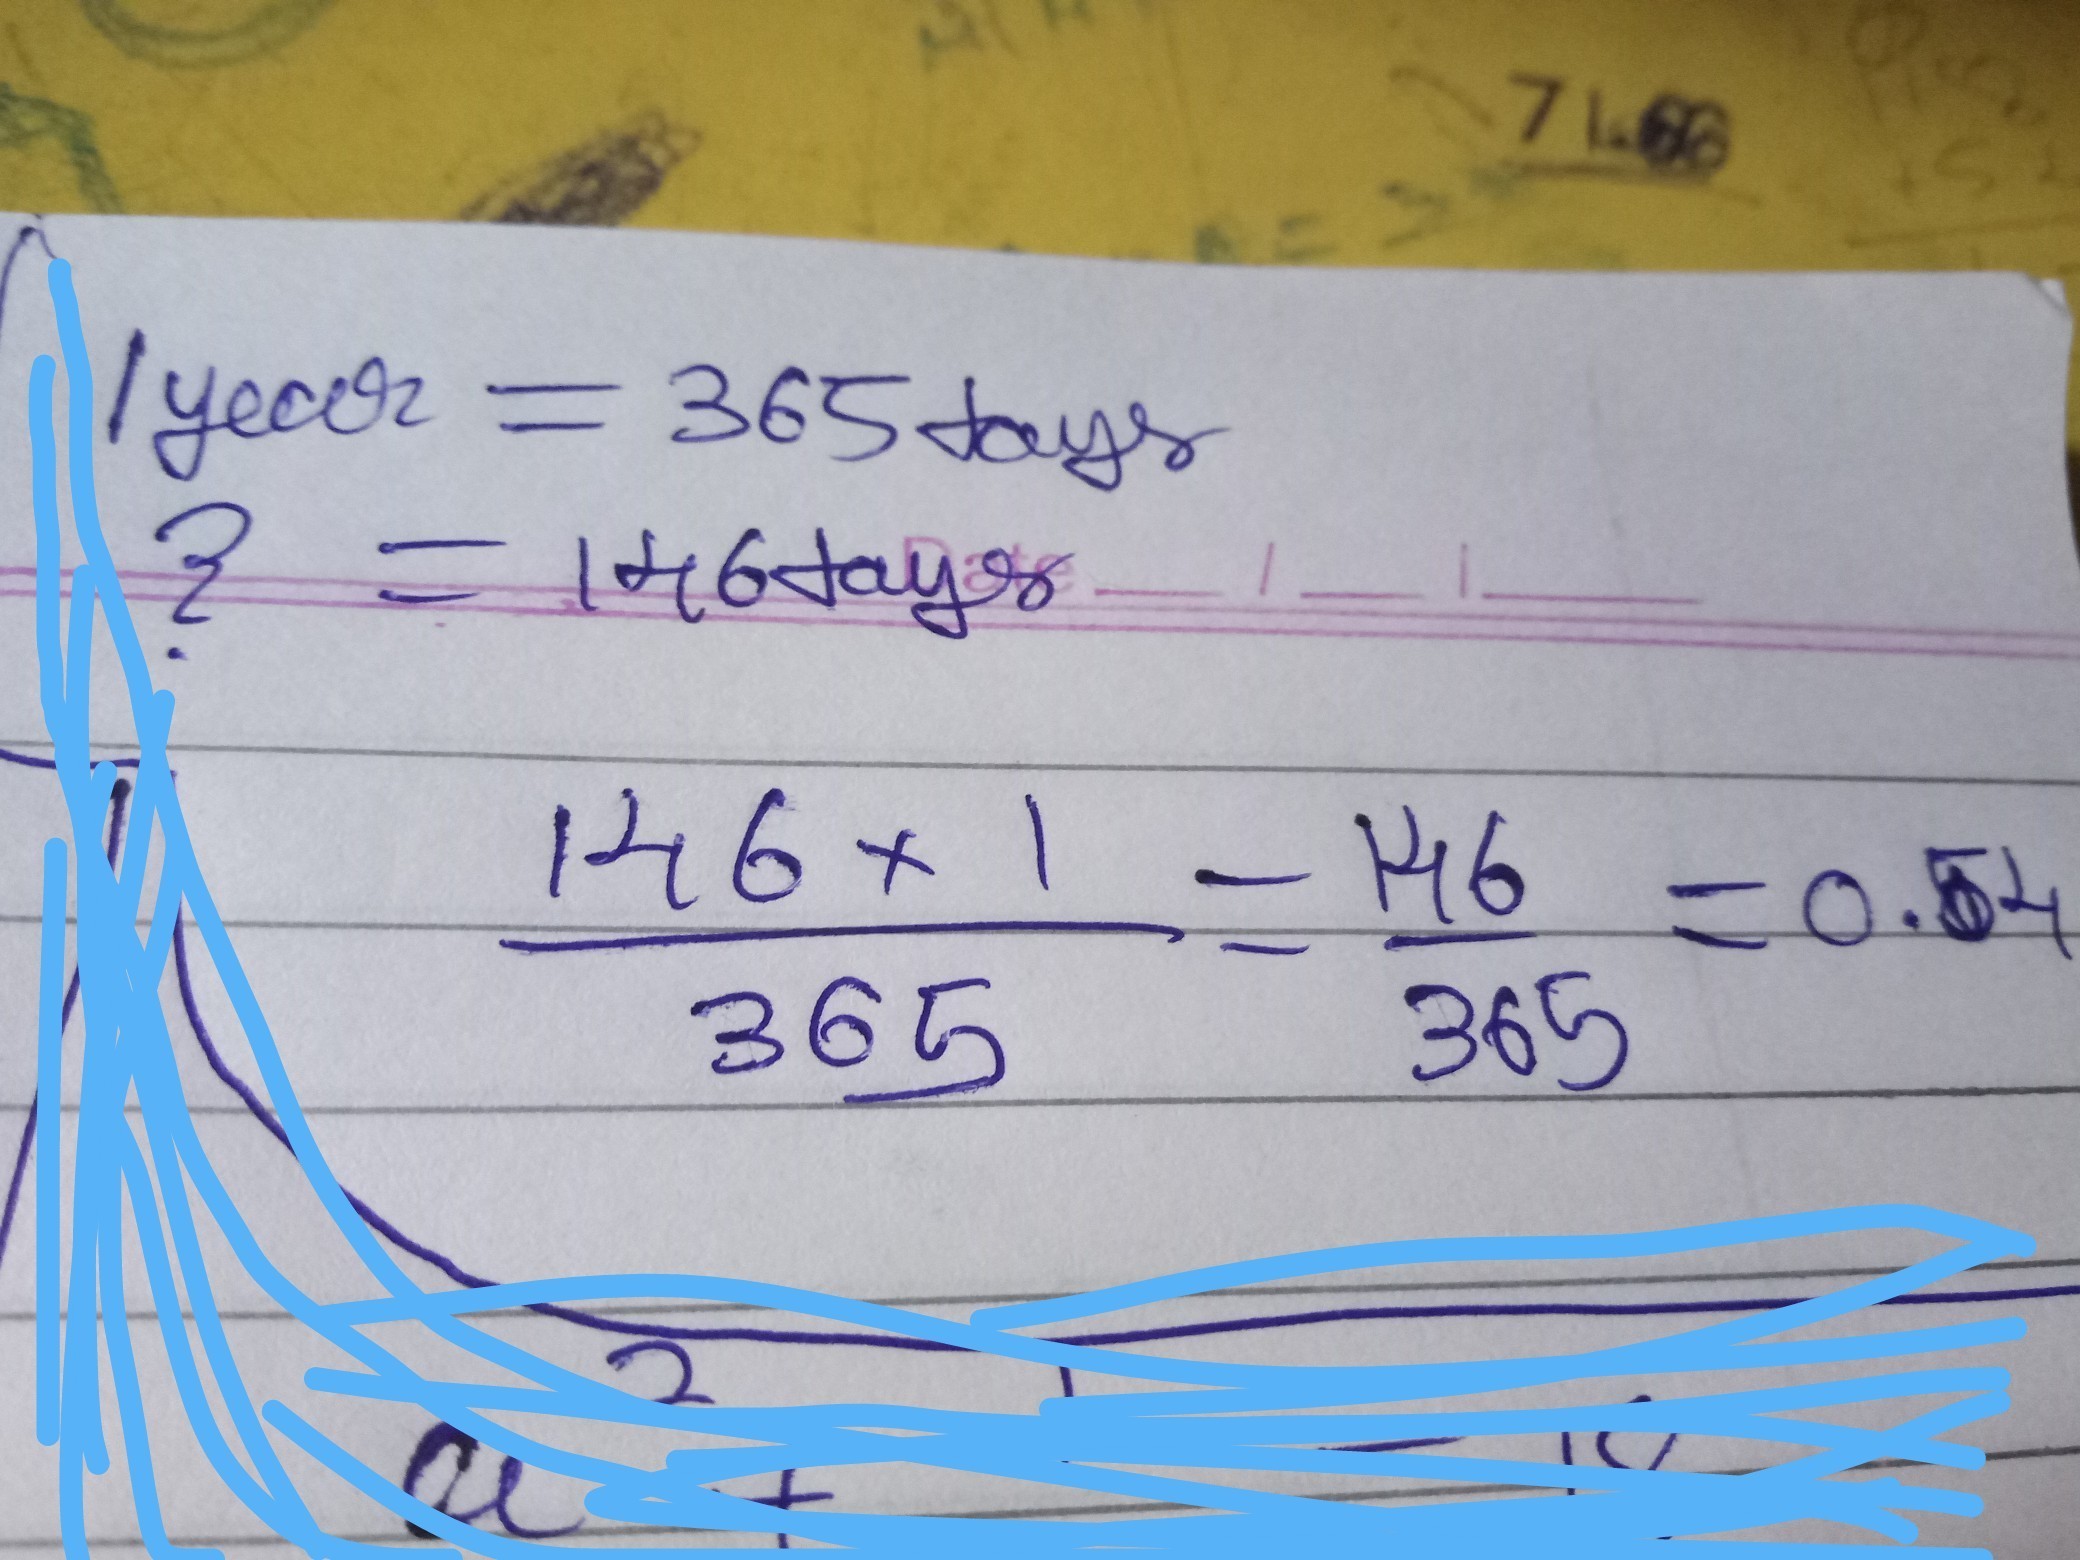 71.66
1 year = 365 days
? = 146 days
Date / /
146 × 1 / 365 = 146 / 365 = 0.54
a² + 1 =